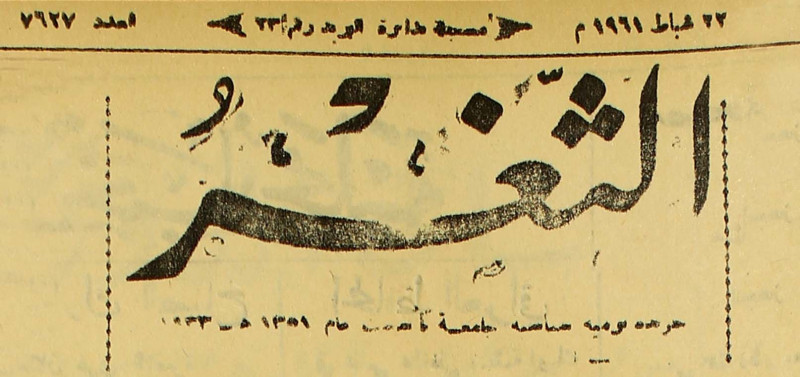 ٢٢ شباط ١٩٦١ م خمسية دائرة البريد رقم ٢٣ العدد ٧٦٢٧
الثَّغْرُ
جريدة يومية سياسية جامعة تأسست عام ١٣٥١ هـ ١٩٣٣